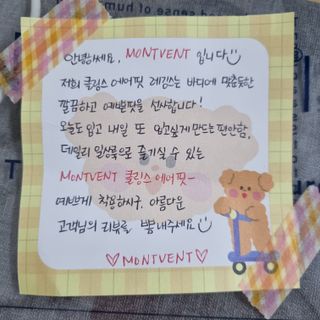 good sense of humor
안녕하세요, MONTVENT 입니다
저희 쿨링스 에어핏 레깅스는 바디에 맞춘듯한
깔끔하고 예쁜핏을 선사합니다!
오늘도 입고 내일 또 입고싶게 만드는 편안함,
데일리 일상룩으로 즐기실 수 있는
MONTVENT 쿨링스 에어핏~
예쁘게 착용하시구, 아름다운
고객님의 리뷰를 뽐내주세요
♡MONTVENT♡